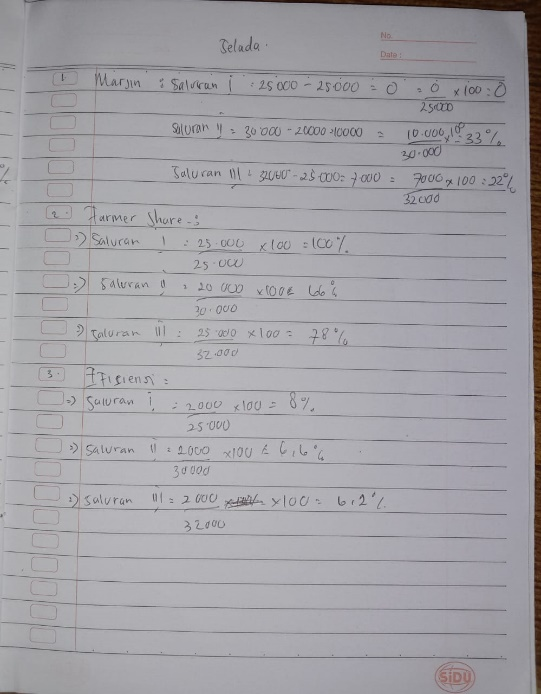 No.
Date:
Selada.
1 Marjin : Saluran I : 25.000 - 25.000 = 0 = 0/25.000 x 100 = 0
Saluran II = 30.000 - 20000 = 10000 = 10.000/30.000 x 100 = 33%
Saluran III = 32000 - 25.000 = 7.000 = 7000/32000 x 100 = 22%
2. Farmer Share :
=) Saluran I : 25.000/25.000 x 100 = 100%
=) Saluran II = 20 000/30.000 x 100 = 66%
=) Saluran III : 25.000/32.000 x 100 = 78%
3. Efisiensi =
=) Saluran I = 2000/25.000 x 100 = 8%.
=) Saluran II = 2000/30000 x 100 = 6,6%
=) Saluran III = 2000/32000 x 100 = 6.2%
SIDU